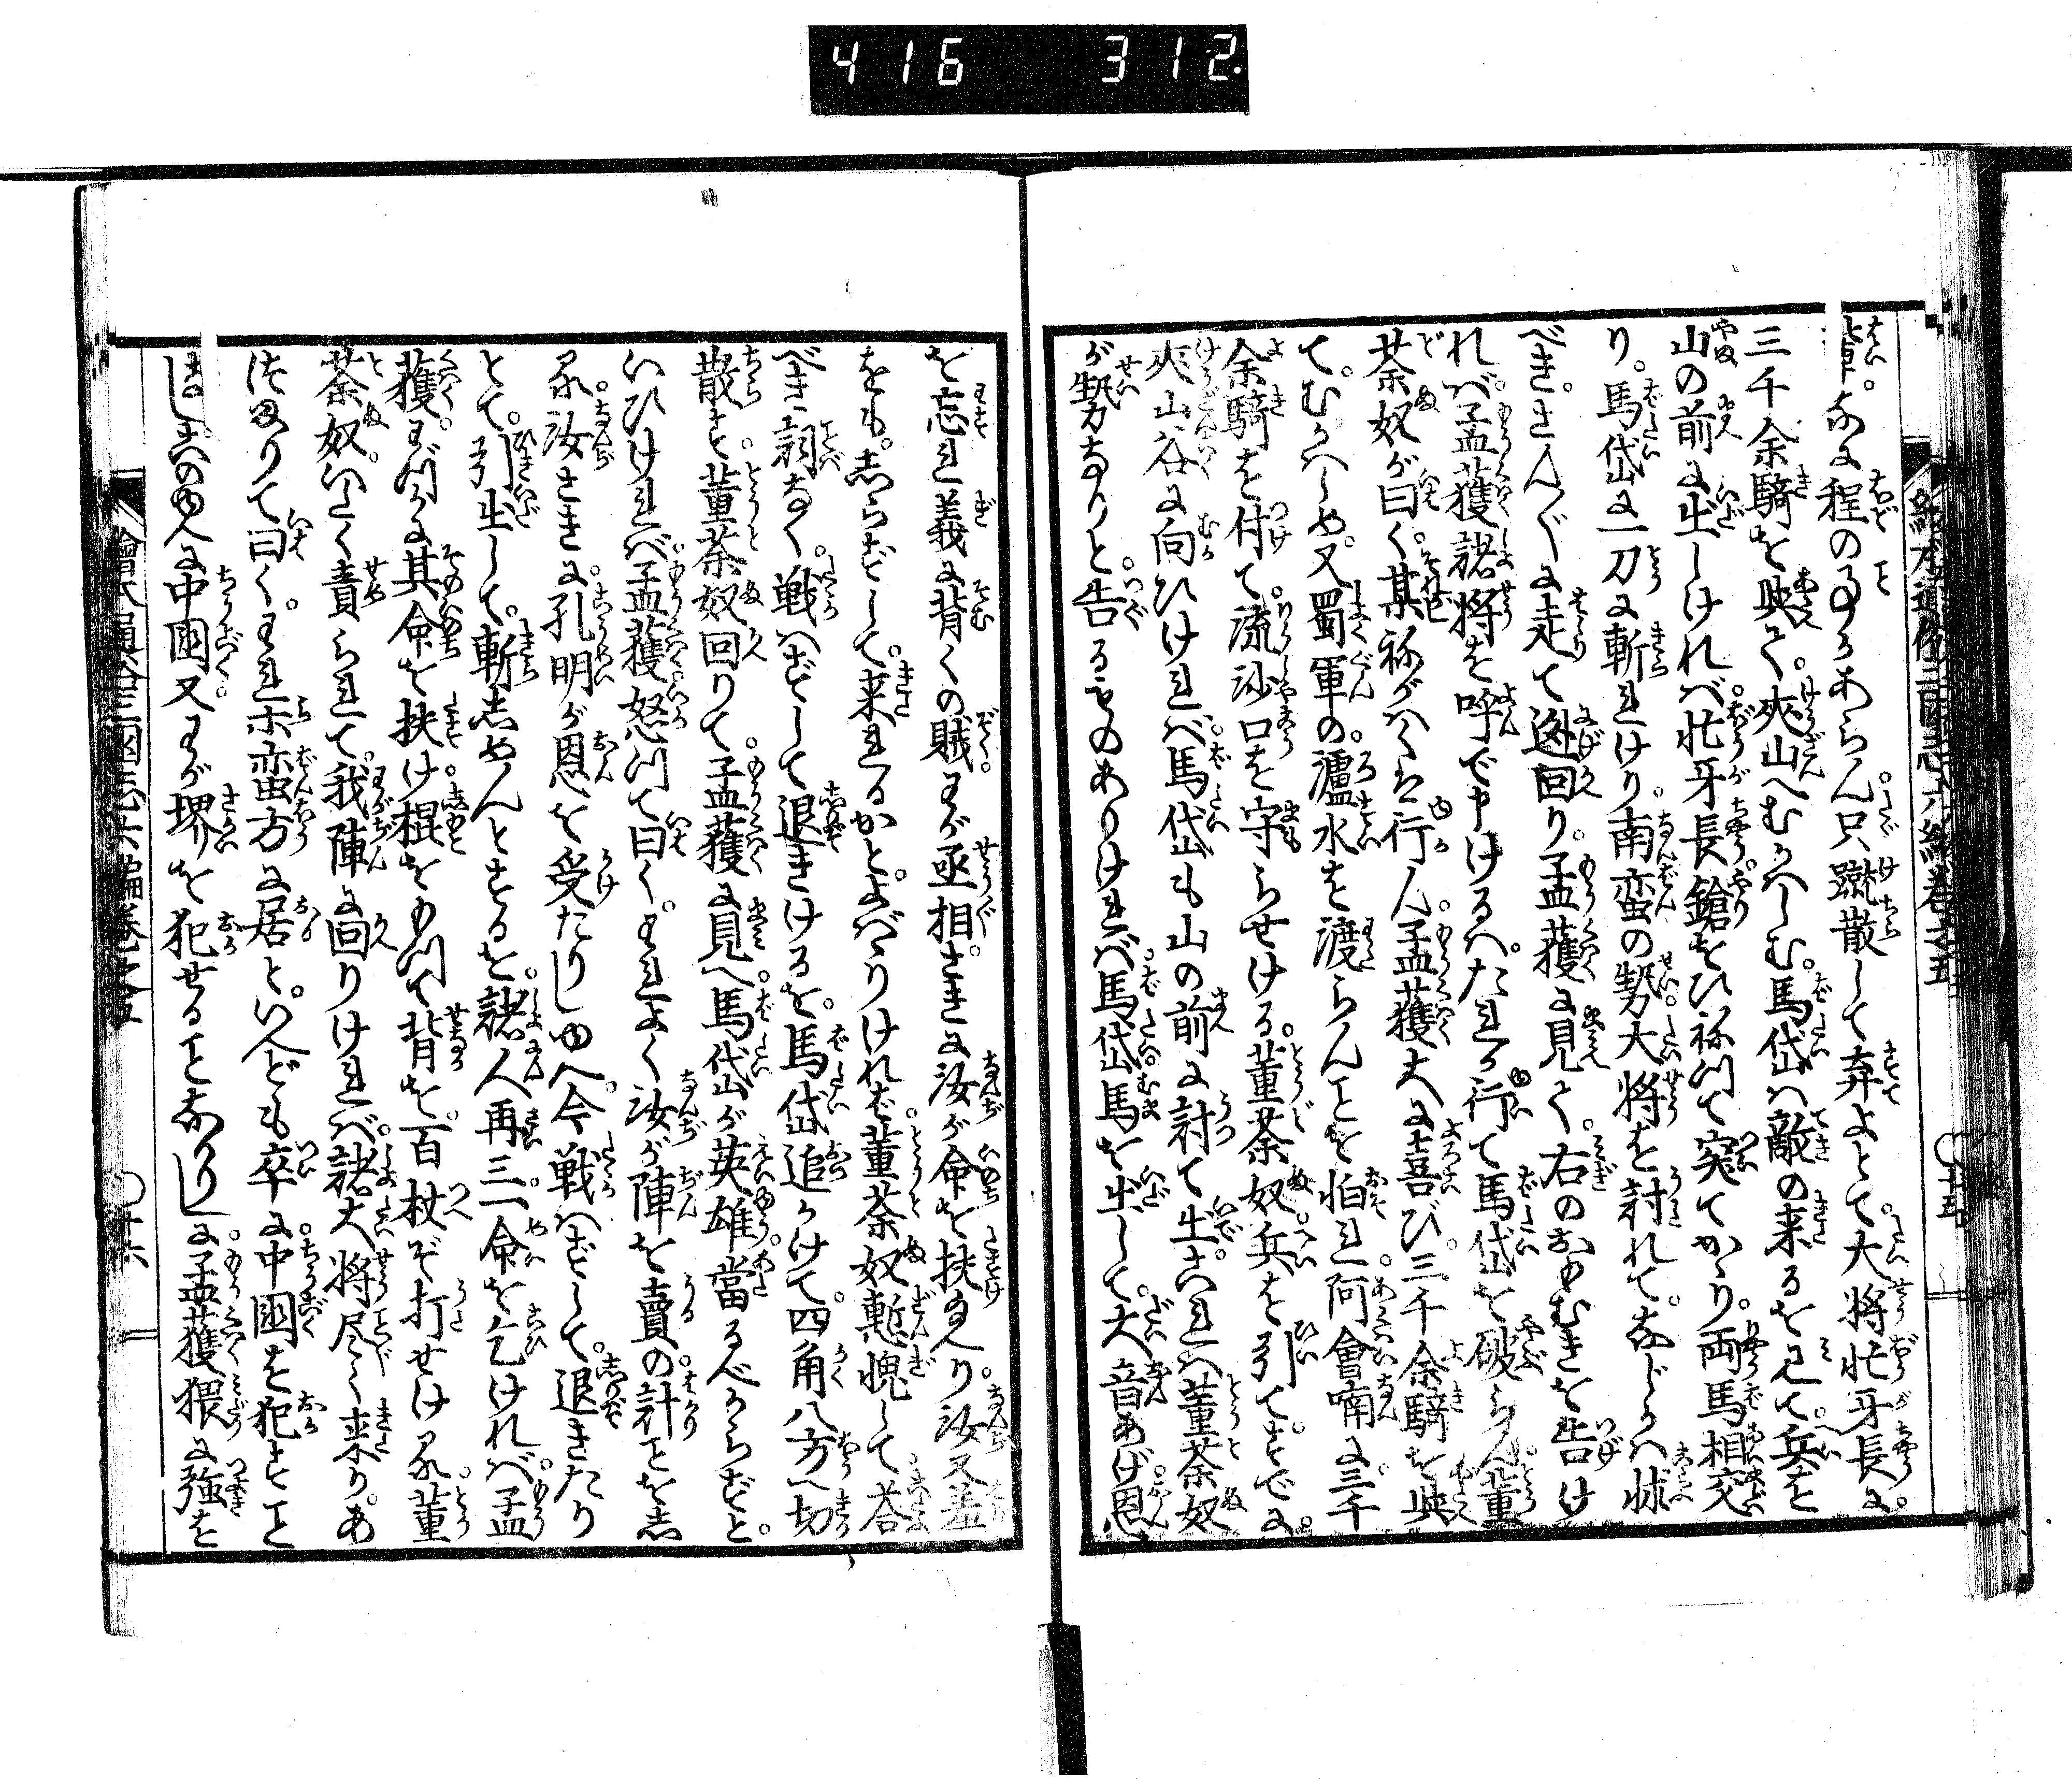 416 312
輩。なに程の事かあらん。只蹴散して弃よとて。大将忙牙長に。
三千余騎を与へて。夾山へむかへしむ。馬岱ハ敵の来るを見て。兵を
山の前に出しければ。忙牙長鎗をひねつて突てかゝり。両馬相交
り。馬岱に一刀に斬れけり。南蛮の勢。大将を討れて。なじかハ怺ふ
べき。さん〴〵に走て逃回り。孟獲に見へて。右のおもむきを告け
れバ。孟獲諸将を呼で申けるハ。たれか行て馬岱を破らん。董
荼奴が曰く。某ねがハくハ行ん。孟獲大に喜び。三千余騎を与へ
て。むかへしめ。又蜀軍の。瀘水を渡らんことを怕れ。阿會喃に三千
余騎を付て。流沙口を守らせける。董荼奴。兵を引て。すでに。
夾山谷に向ひけれバ。馬岱も山の前に討て出。これハ董荼奴
が勢なりと。告るものありけれバ。馬岱馬を出して。大音あげ。恩
を忘れ義に背くの賊。わが丞相。さきに汝が命を扶給へり。汝又羞
をも。志らずして。来れるかとよバゝりければ。董荼奴慙愧して。荅
べき詞なく。戦ハずして退きけるを。馬岱追かけて。四角八方へ切
散す。董荼奴回りて。孟獲に見へ。馬岱が英雄。當るべからずと。
いひけれバ。孟獲怒つて曰く。われよく汝が陣を賣の。計ことを志
る。汝さきに。孔明が恩を受たりしゆへ。今戦ハずして。退きたり
とて。引出して。斬志めんとするを。諸人再三。命を乞けれバ。孟
獲。わづかに其命を扶け。棍をもつて背を。百杖ぞ打せける。董
荼奴。いたく責られて。我陣に回りけれバ。諸大将尽く来り。あ
つまりて曰く。われら蛮方に居と。いへども卒に。中國を犯すこと
なし。このゆへに中國。又わが堺を犯せることなかりしに。孟獲猥に強を